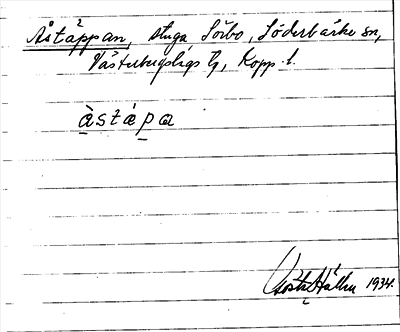 Åstäppan, stuga Sörbo, Söderbärke sn,
Västerbergslags tg, Kopp. l.
àstäpa
1934.